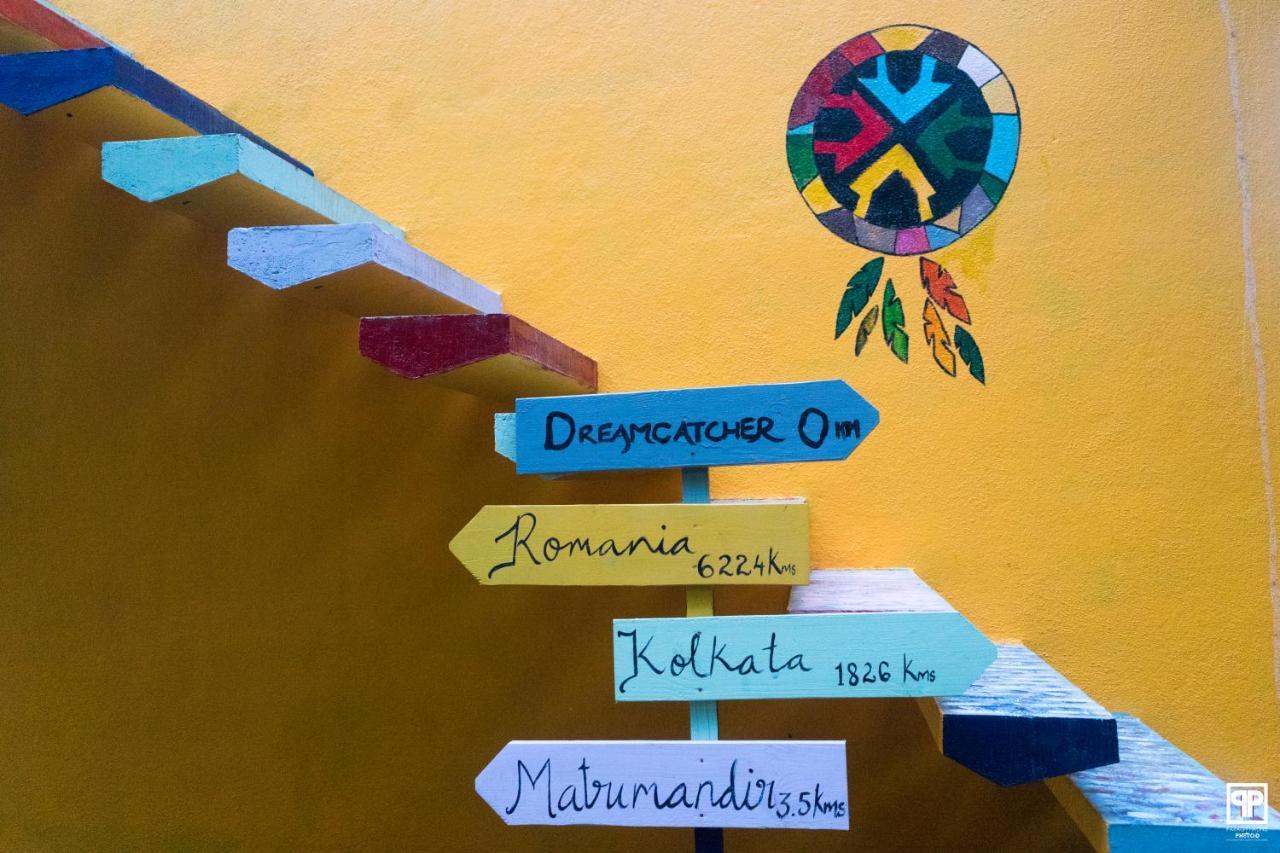 DREAMCATCHER 0 KM
Romania 6224 Kms
Kolkata 1826 Kms
Matrumandir 3.5 Kms
PP